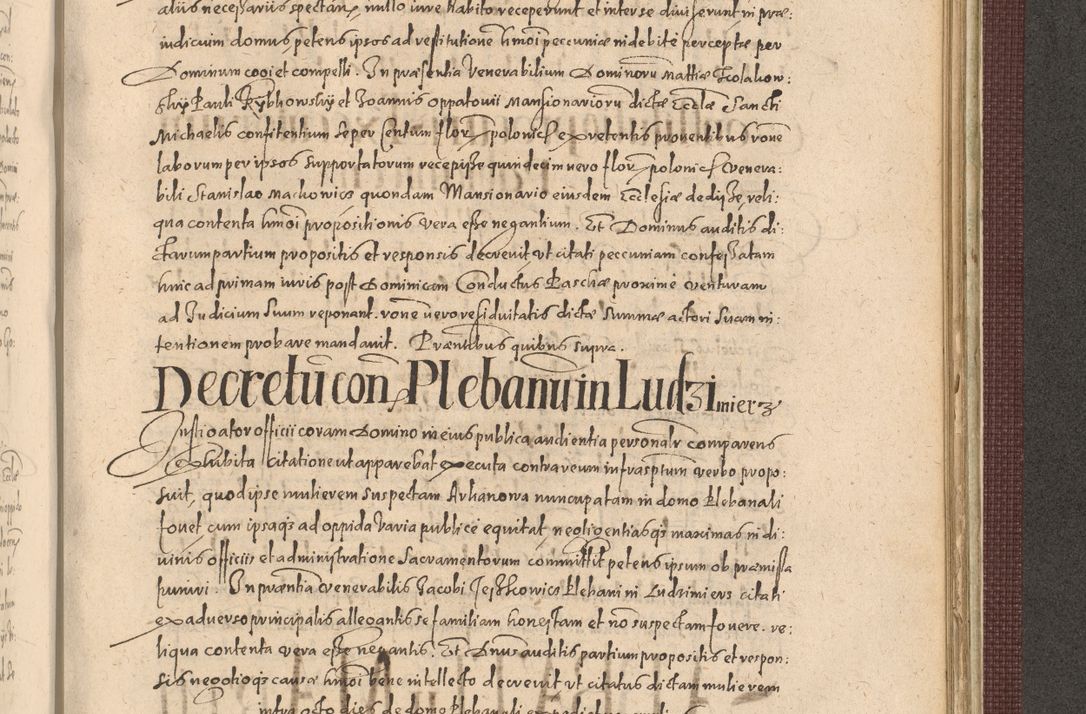 alijs necessarijs spectan nullo iure habito receperunt et inter se diviserunt in præ:
iudicium domus petens ipsos ad restitutione hmoi peccuniæ indebité perceptæ per
Dominum cogi et compelli. In præsentia Venerabilium Dominoru Mattiæ
Pauli Rybkowsky et Joannis Oppatouij Mansionarioru dictæ Eccłæ Sancti
Michaelis confitentium se per Centum flor polonicł ex retentis prouentibus rone
laborum per ipsos supportatorum recepisse quindecim uero flor polonicł Venera:
bili Stanislao Machowicz quondam Mansionario eiusdem Ecclesiæ dedisse, reli:
qua contenta hmoi propositionis vera esse negantium. Et Dominus auditis di:
ctarum partium propositis et responsis decreuit vt citati peccuniam confessatam
hinc ad primam iuris post Dominicam Conductus Paschæ proxime venturam
ad Iudicium suum reponant. rone uero residuitatis dictæ summæ actori suam in:
tentionem probare mandauit. Præntibus quibus supra.
Decretu con Plebanu in Ludzimierz
Instigator officij coram Domino in eius publica audientia personalr comparens
exhibita citatione ut apparebat executa contra reum infrascptum verbo propo:
suit, quod ipse mulierem suspectam Arhanowa nuncupatam in domo plebanali
fouet cum ipsaqз ad oppida varia publicé equitat negligentiasqз maximas in di:
uinis officijs et administratione Sacramentorum committit petens ipsum ob præmissa
puniri. In præntia venerabilis Jacobi Jeżkowicz plebani in Ludzimierz citati
ex aduerso principalis allegantis se familiam honestam et no suspectam fouere. re:
liqua contenta vera esse negantis. Et Dnus auditis partium propositis et respon:
sis negotioqз causæ hmoi bene intellecto decreuit vt citatus dictam mulierem
intra octo dies de domo plebanali